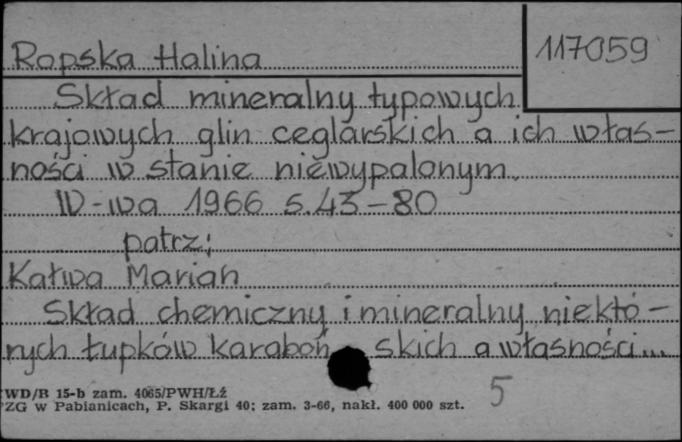 Rapska Halina
117059
Skład mineralny typowych
krajowych glin ceglarskich a ich włas-
ności w stanie niewypalonym.
W-wa 1966 s.43-80
patrz:
Kałwa Marian
Skład chemiczny i mineralny niektó-
rych łupków karboń skich a własności...
WD/B 15-b zam. 4065/PWH/Łź
ZG w Pabianicach, P. Skargi 40; zam. 3-66, nakł. 400 000 szt.
5